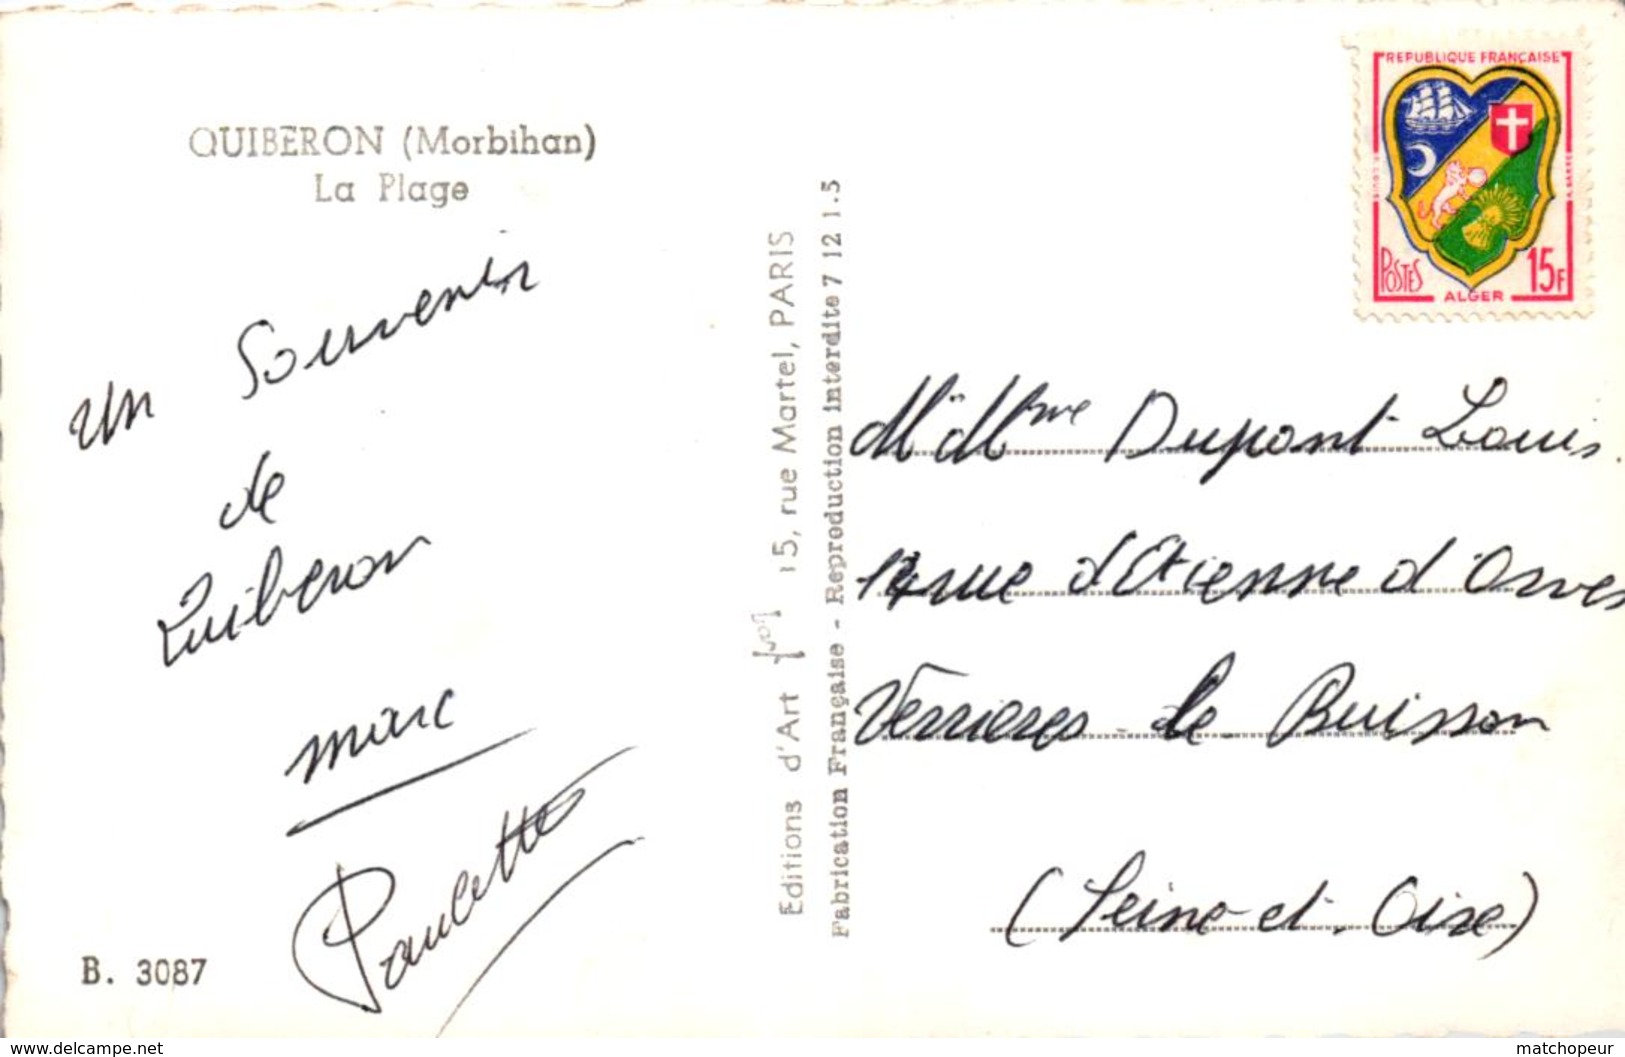 QUIBERON (Morbihan)
La Plage
un Souvenir
de
Quiberon
marc
Paulette
B. 3087
Editions d'Art 15, rue Martel, PARIS
Fabrication Française - Reproduction interdite 7 12 1.5
REPUBLIQUE FRANÇAISE
POSTES
15F
ALGER
M. Mme Dupont Louis
rue d'Etienne d'Orves
Verrieres-le-Buisson
(Seine-et-Oise)
www.delcampe.net
matchopeur